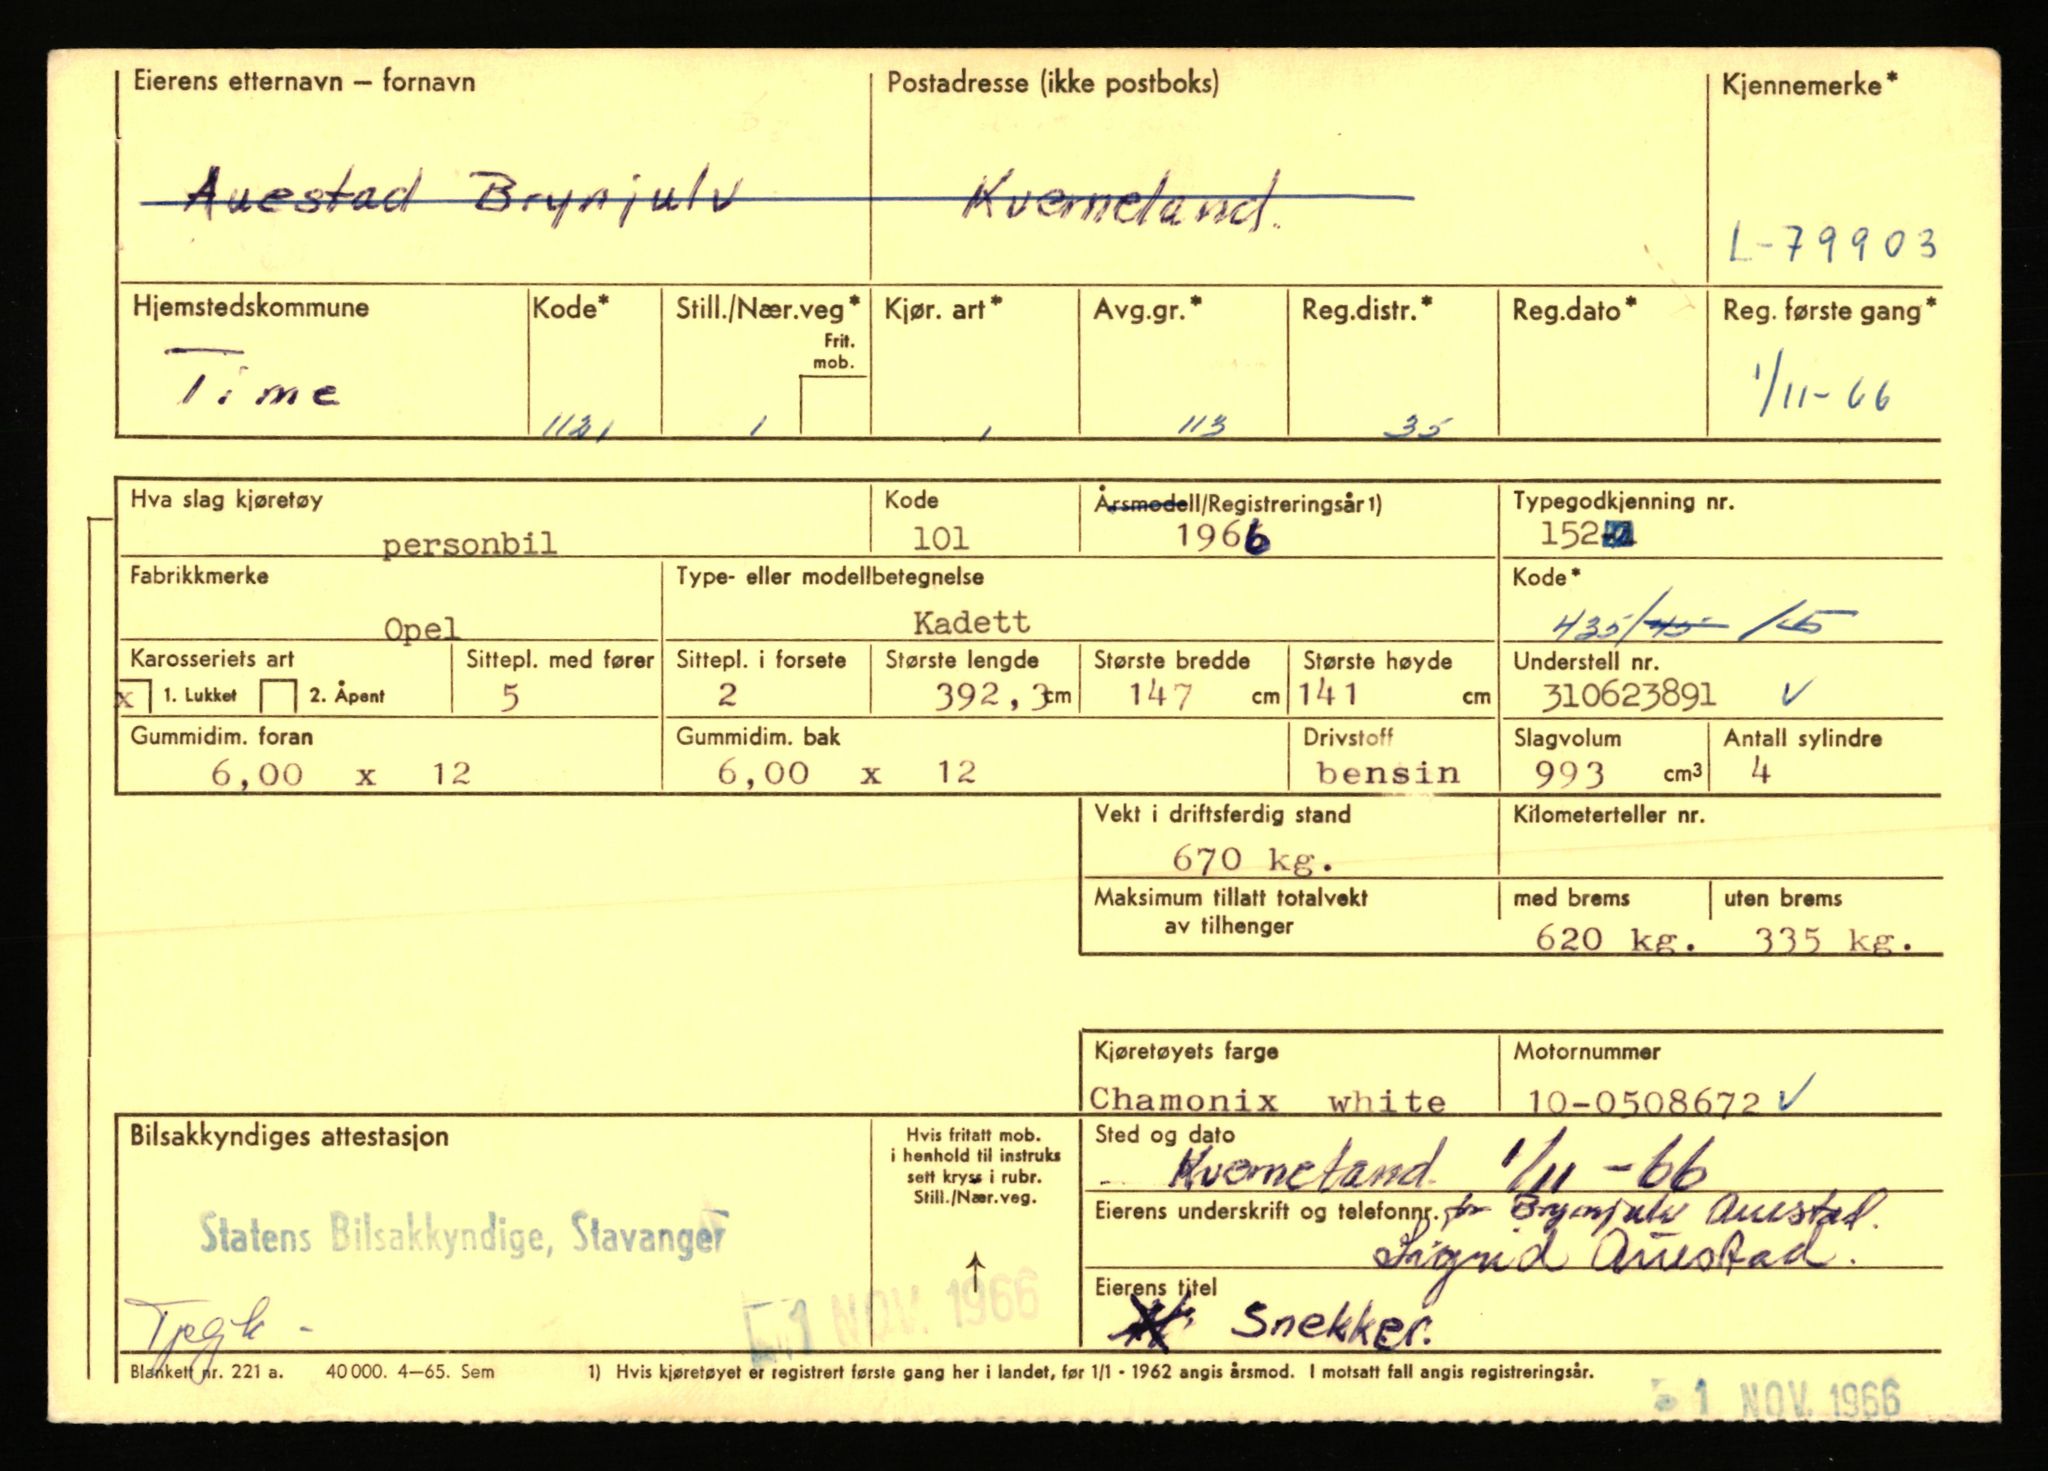 Eierens etternavn — fornavn Postadresse (ikke postboks) Kjennemerke*
Auestad Brynjulv Kverneland.
L-79903
Hjemstedskommune Kode* Still./Nær.veg* Kjør. art* Avg.gr.* Reg.distr.* Reg.dato* Reg. første gang*
Frit.
mob.
Time 1121 1 1 113 35 1/11-66
Hva slag kjøretøy Kode Årsmodell/Registreringsår1) Typegodkjenning nr.
personbil 101 1966 152
Fabrikkmerke Type- eller modellbetegnelse Kode*
Opel Kadett 435/45 /
Karosseriets art Sittepl. med fører Sittepl. i forsete Største lengde Største bredde Største høyde Understell nr.
x 1. Lukket 2. Åpent 5 2 392,3 cm 147 cm 141 cm 310623891 ✓
Gummidim. foran Gummidim. bak Drivstoff Slagvolum Antall sylindre
6,00 x 12 6,00 x 12 bensin 993 cm3 4
Vekt i driftsferdig stand Kilometerteller nr.
670 kg.
Maksimum tillatt totalvekt med brems uten brems
av tilhenger
620 kg. 335 kg.
Kjøretøyets farge Motornummer
Chamonix white 10-0508672 ✓
Bilsakkyndiges attestasjon
Hvis fritatt mob.
i henhold til instruks
sett kryss i rubr.
Still./Nær.veg.
Sted og dato
Kverneland 1/11-66
Eierens underskrift og telefonnr. for Brynjulv Auestad.
Sigrid Auestad.
Statens Bilsakkyndige, Stavanger
Eierens titel
Snekker.
1 NOV. 1966
Blankett nr. 221 a. 40 000. 4—65. Sem 1) Hvis kjøretøyet er registrert første gang her i landet, før 1/1 - 1962 angis årsmod. I motsatt fall angis registreringsår.
1 NOV. 1966